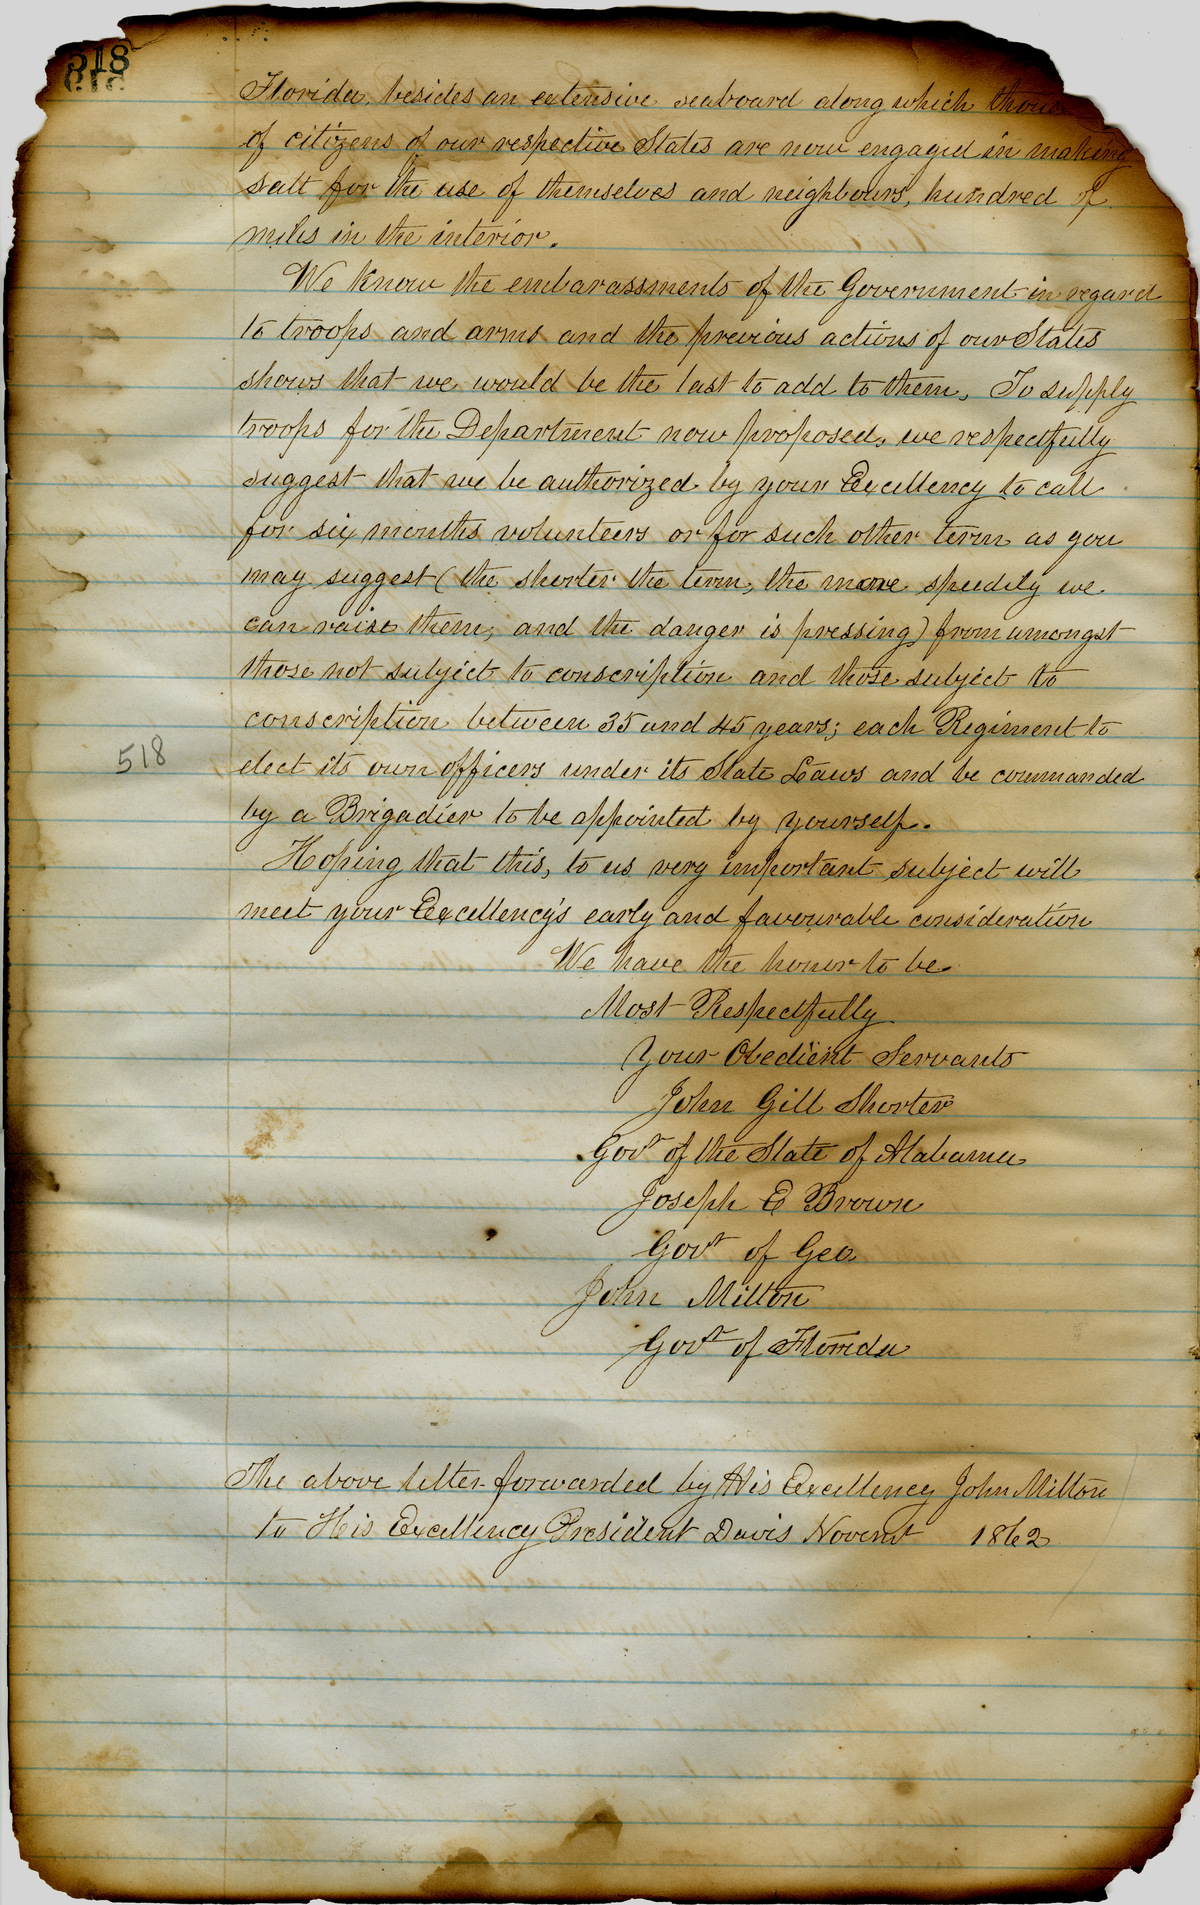 518
Florida, besides an extensive seaboard along which
of citizens of our respective States are now engaged in making
salt for the use of themselves and neighbours, hundred of
miles in the interior.
We know the embarassments of the Government in regard
to troops and arms and the previous actions of our States
shows that we would be the last to add to them. To supply
troops for the Department now proposed, we respectfully
suggest that we be authorized by your Excellency to call
for six months volunteers or for such other term as you
may suggest (the shorter the term, the more speedily we
can raise them, and the danger is pressing) from amongst
those not subject to conscription and those subject to
conscription between 35 and 45 years; each Regiment to
518
elect its own officers under its State Laws and be commanded
by a Brigadier to be appointed by yourself.
Hoping that this, to us very important subject will
meet your Excellency's early and favourable consideration
We have the honor to be
Most Respectfully
Your Obedient Servants
John Gill Shorter
Govr of the State of Alabama
Joseph E Brown
Govr of Geo
John Milton
Govr of Florida
The above letter forwarded by His Excellency John Milton
to His Excellency President Davis Novemr 1862